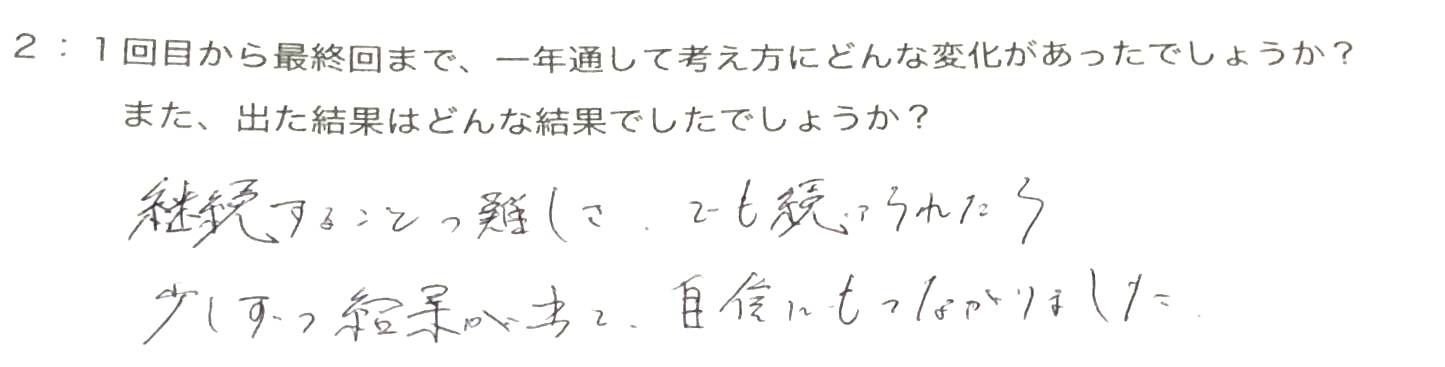 2:1回目から最終回まで、一年通して考え方にどんな変化があったでしょうか?
また、出た結果はどんな結果でしたでしょうか?
継続することの難しさ、でも続けられたら
少しずつ結果が出て、自信にもつながりました